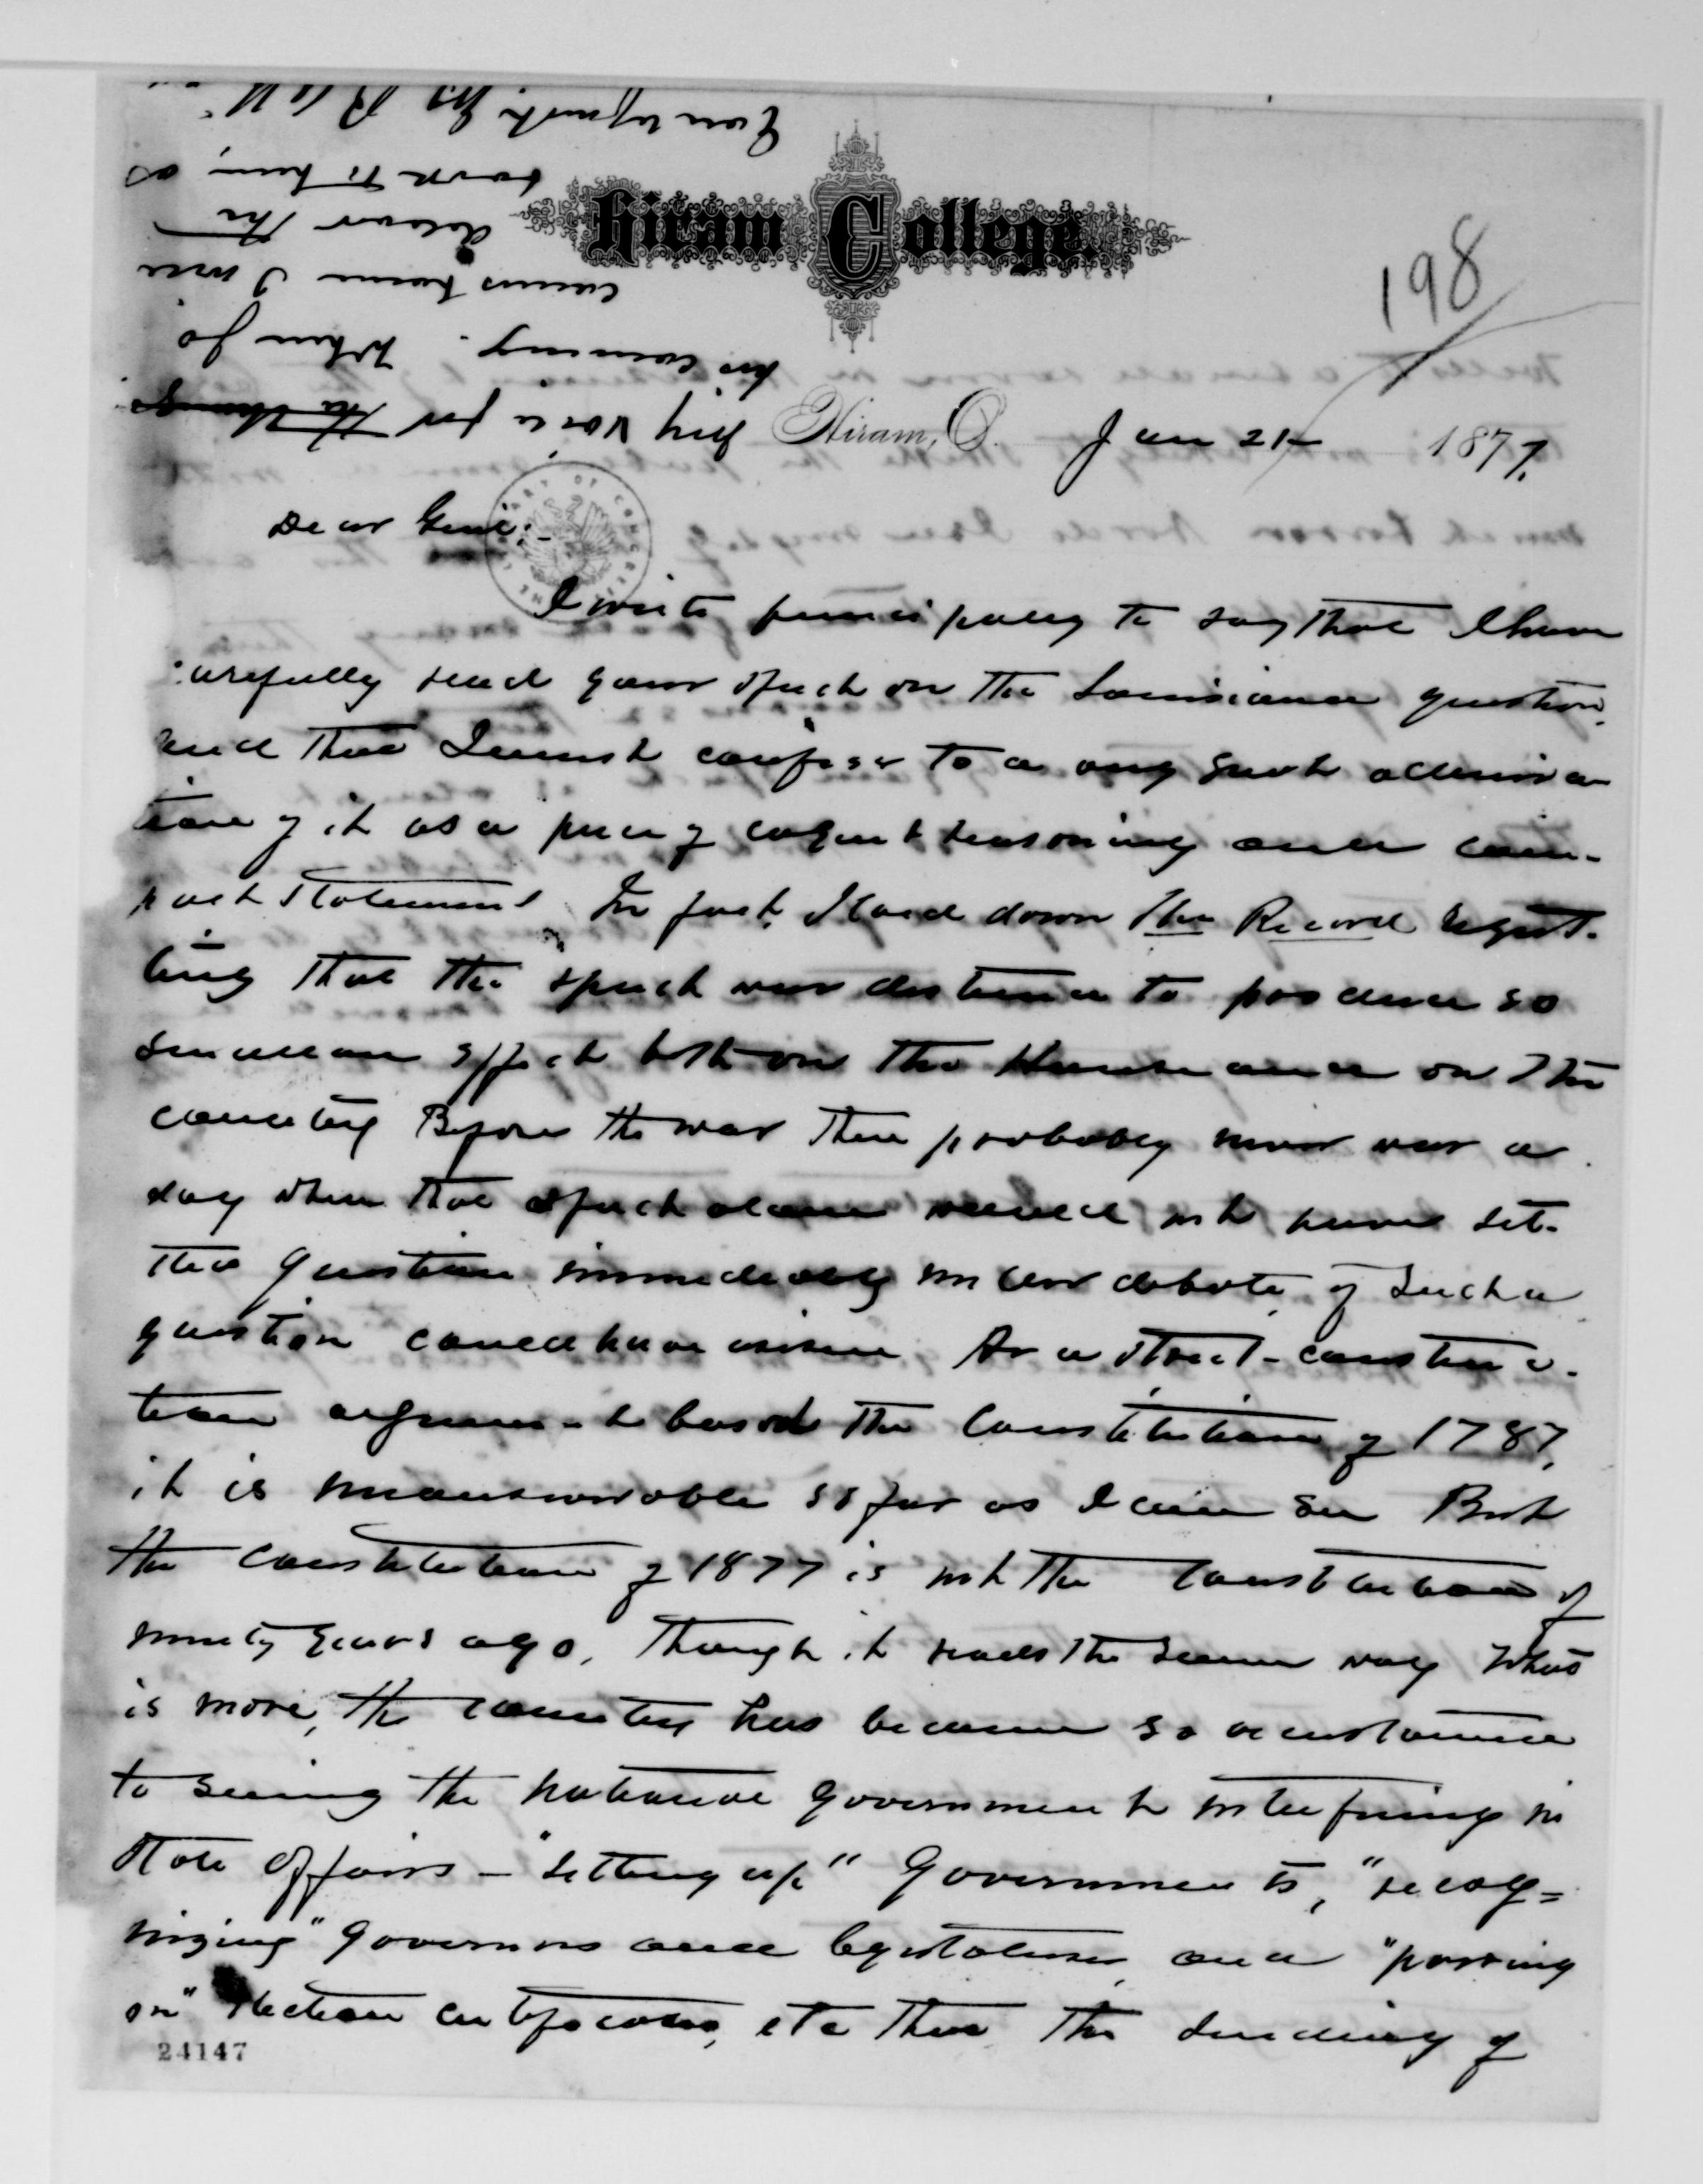 Hiram College.
198
Hiram, O. Jan 21st 1877.
Dear Genl:-
I write principally to say that I have
carefully read your speech on the Louisiana question,
and that I must confess to a very great admira
tion of it as a piece of cogent reasoning and com-
pact statement. In fact, I laid down The Record regret-
ting that the speech was destined to produce so
small an effect both on the House and on the
country. Before the war there probably never was a
day when that speech alone would not have set-
tled question immediately under debate, if such a
question could have arisen. As a strict-construc-
tion argument based the Constitution of 1787,
it is unanswerable so far as I can see. But
the Constitution of 1877 is not the Constitution of
ninety years ago, though it reads the same way. What
is more, the country has become so accustomed
to seeing the national government interfering in
State affairs – "setting up" Governments, "recog-
nizing" Governors and legislatures, and "passing
on" election certificates, etc. that the sending of
24147
my voice for the change
his coming. When Jo
comes home I will
deliver the
book to him, as
Ever yours, B. A. H.